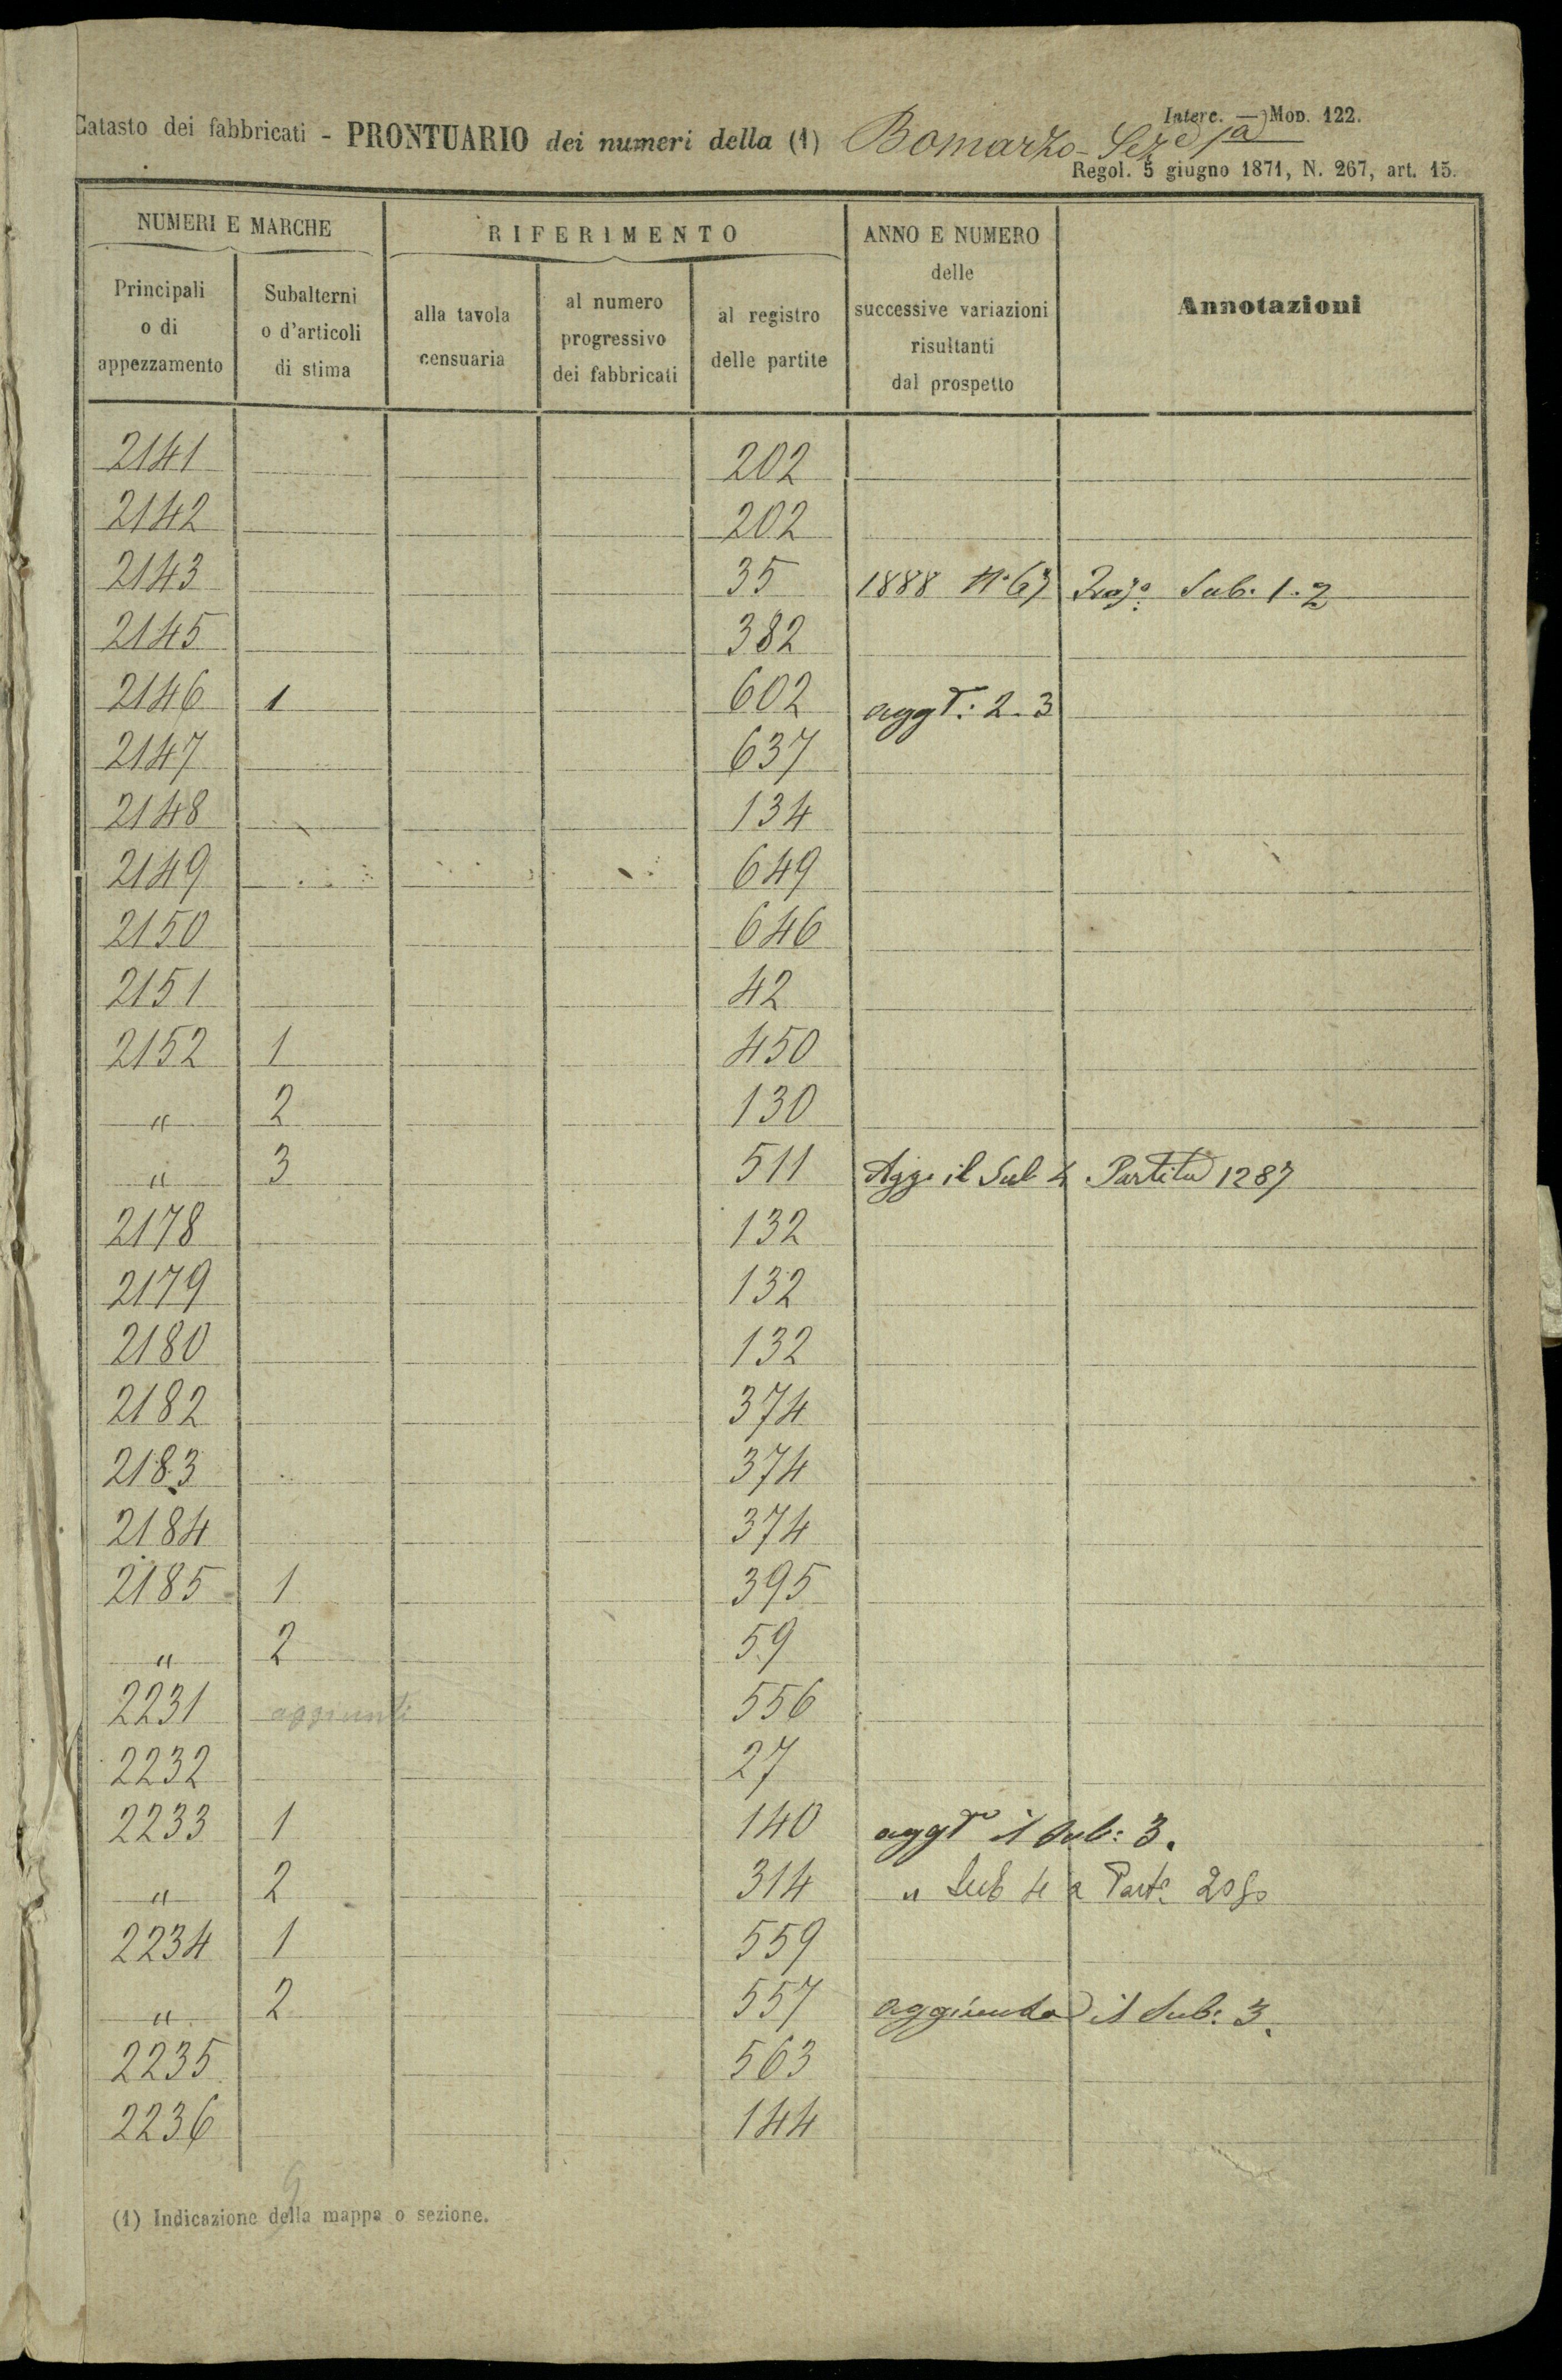 Interc. — Mod. 122.
Catasto dei fabbricati - PRONTUARIO dei numeri della (1) Bomarzo - Sezᵉ 1ª
Regol. 5 giugno 1871, N. 267, art. 15.
NUMERI E MARCHE RIFERIMENTO ANNO E NUMERO delle successive variazioni risultanti dal prospetto Annotazioni
Principali o di appezzamento Subalterni o d'articoli di stima alla tavola censuaria al numero progressivo dei fabbricati al registro delle partite
2141 202
2142 202
2143 35 1888 Nº 67 Sub. 1. 2
2145 382
2146 1 602 aggT: 2. 3
2147 637
2148 134
2149 649
2150 646
2151 42
2152 1 450
" 2 130
" 3 511 Agg. il Sub 4 Partita 1287
2178 132
2179 132
2180 132
2182 374
2183 374
2184 374
2185 1 395
" 2 59
2231 aggiunti 556
2232 27
2233 1 140 aggTº il Sub: 3.
" 2 314 " Sub 4 a Partª
2234 1 559
" 2 557 aggiunto il Sub: 3.
2235 563
2236 144
9
(1) Indicazione della mappa o sezione.